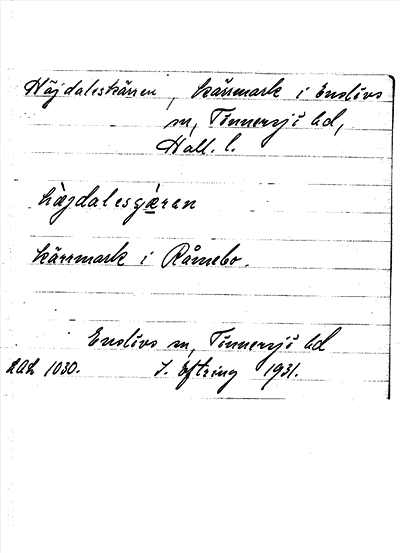 Höjdaleskärren, kärrmark i Enslövs
sn, Tönnersjö hd,
Hall. l.
hǫjdalesɡæ̱ren
kärrmark i Råmebo.
Enslövs sn, Tönnersjö hd
1030. J. Eftring 1931.